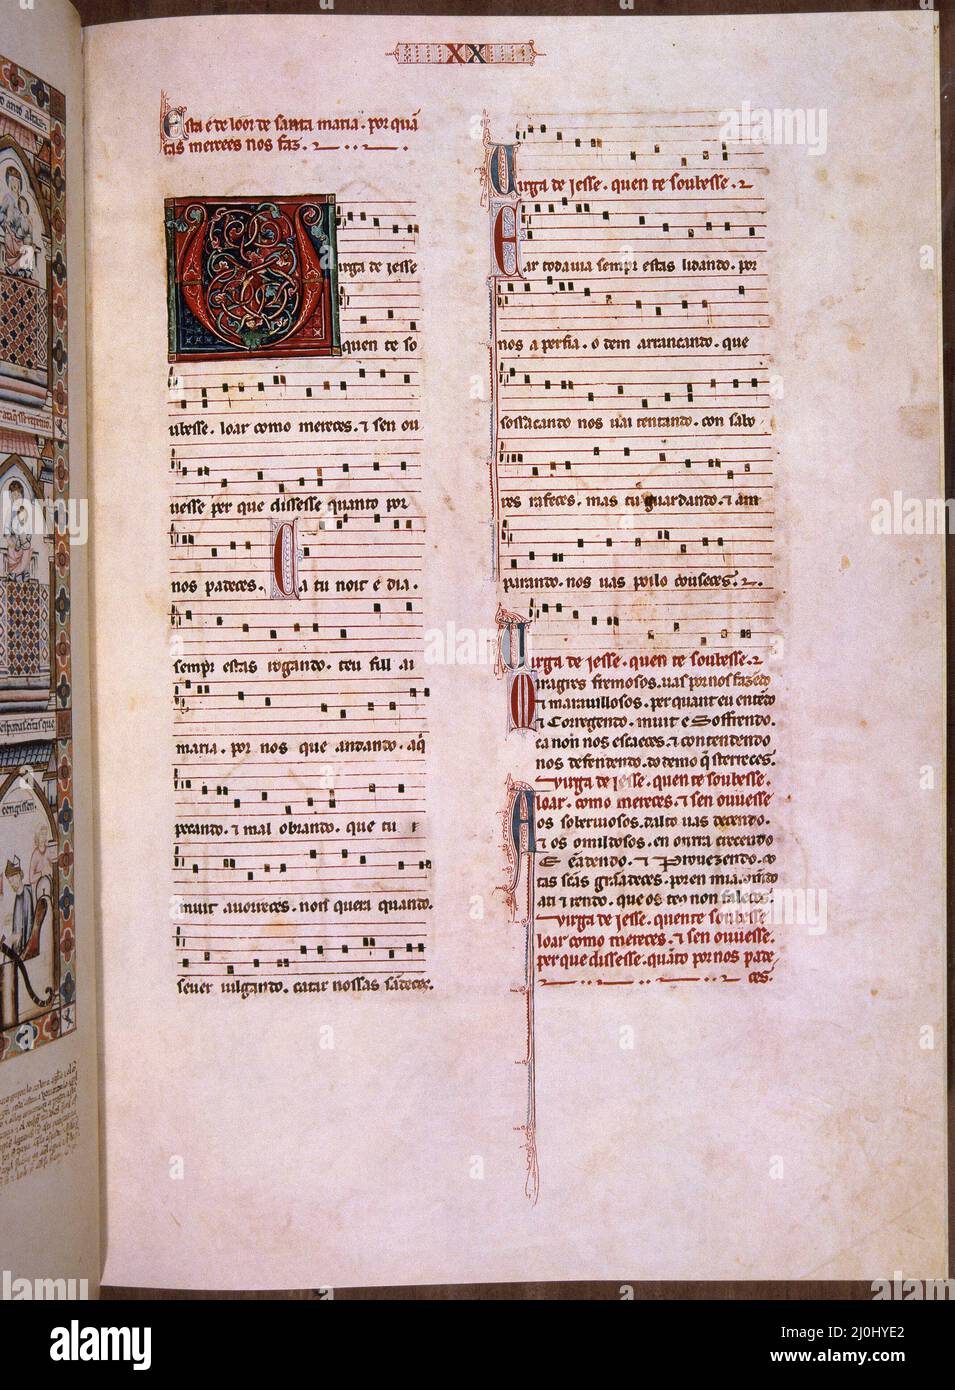 XX
Esta é de loor de santa maria. por quã
tas merces nos faz.
Virga de iesse
quen te so
ubesse. loar como mereces. & sen ou
uesse per que dissesse quanto por
nos padeces. Ca tu noit e dia.
sempr estas rogando. teu fill ai
maria. por nos que andando. aq̃
pecando. & mal obrando. que tu
muit auorreces. non quera quando.
seuer uilgando. catar nossas sãdeces.
Uirga de iesse. quen te soubesse.
E ar todauia sempr estas lidando. por
nos a perfia. o dem arrancando. que
sossacando nos uai tentando. con sabo
res rafeces. mas tu guardando. & am
parando. nos uas poilo couseces.
Uirga de iesse. quen te soubesse.
Miragres fremosos. uas por nos fazẽdo
& marauillosos. per quant eu entẽdo
& Corregendo. muit e Soffrendo.
ca non nos escaeces. & contendendo
nos defendendo. do demo q̃ sterreces.
Uirga de iesse. quen te soubesse.
loar. como mereces. & sen ouuesse
Aos soberuiosos. dalto uas decendo.
& os omildosos. en onrra crecendo
E Eãdendo. & Prouezendo.
tas scãs grãadeces. poren mia. om̃do
ati & rendo. que os teus non faleces.
Uirga de iesse. quen te soubesse.
loar como mereces. & sen ouuesse.
per que dissesse. quãto por nos pade
ces.
cengissen.
alamy
Image ID: 2J0HYE2
www.alamy.com